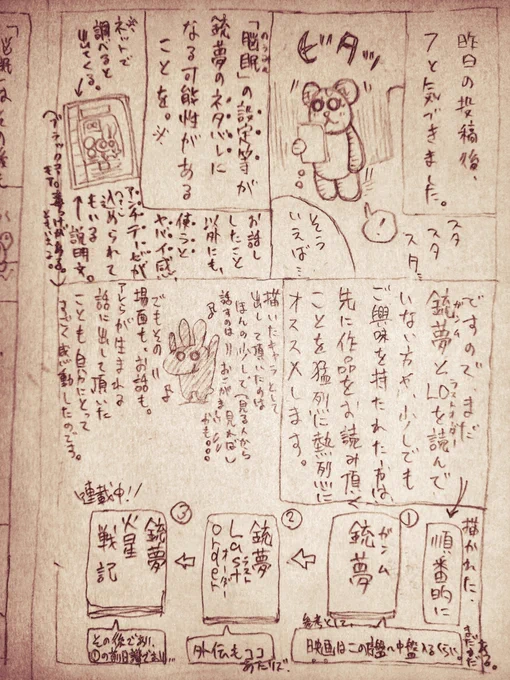 昨日の投稿後、
フと気づきました。
ピタッ
スタ
スタ
スタ…
！
そう
いえば…
「脳眠」の設定等が
銃夢のネタバレに
なる可能性がある
ことを。※
※ネットで
調べると
出てくる。
お話し
したこと
以外にも、
使うと
ヤバイ感
込められて
もいる
↑説明文。
ですので、まだ
銃夢とLOを読んで
ガンム
ラストオーダー
いない方や、少しでも
ご興味を持たれた方は、
先に作品をお読み頂く
ことを猛烈に熱烈に
オススメします。
描いたキャラとして
出して頂いたのは
ほんの少しで(見る人から
話すのはおこがましい
かも。。。
でもその
場面も、お話も。
アレらが生まれる
話に出して頂いた
ことも自分にとって
すごく感動したのです。
描かれた、
順番的に
①
銃夢
ガンム
②
銃夢
Last
Order
ラスト
オーダー
③
銃夢
火星
戦記
連載中!!
参考として、
映画はこの序盤〜中盤入るくらい。
外伝もココ
あたりで、
その後であり、
①の前日譚であり…